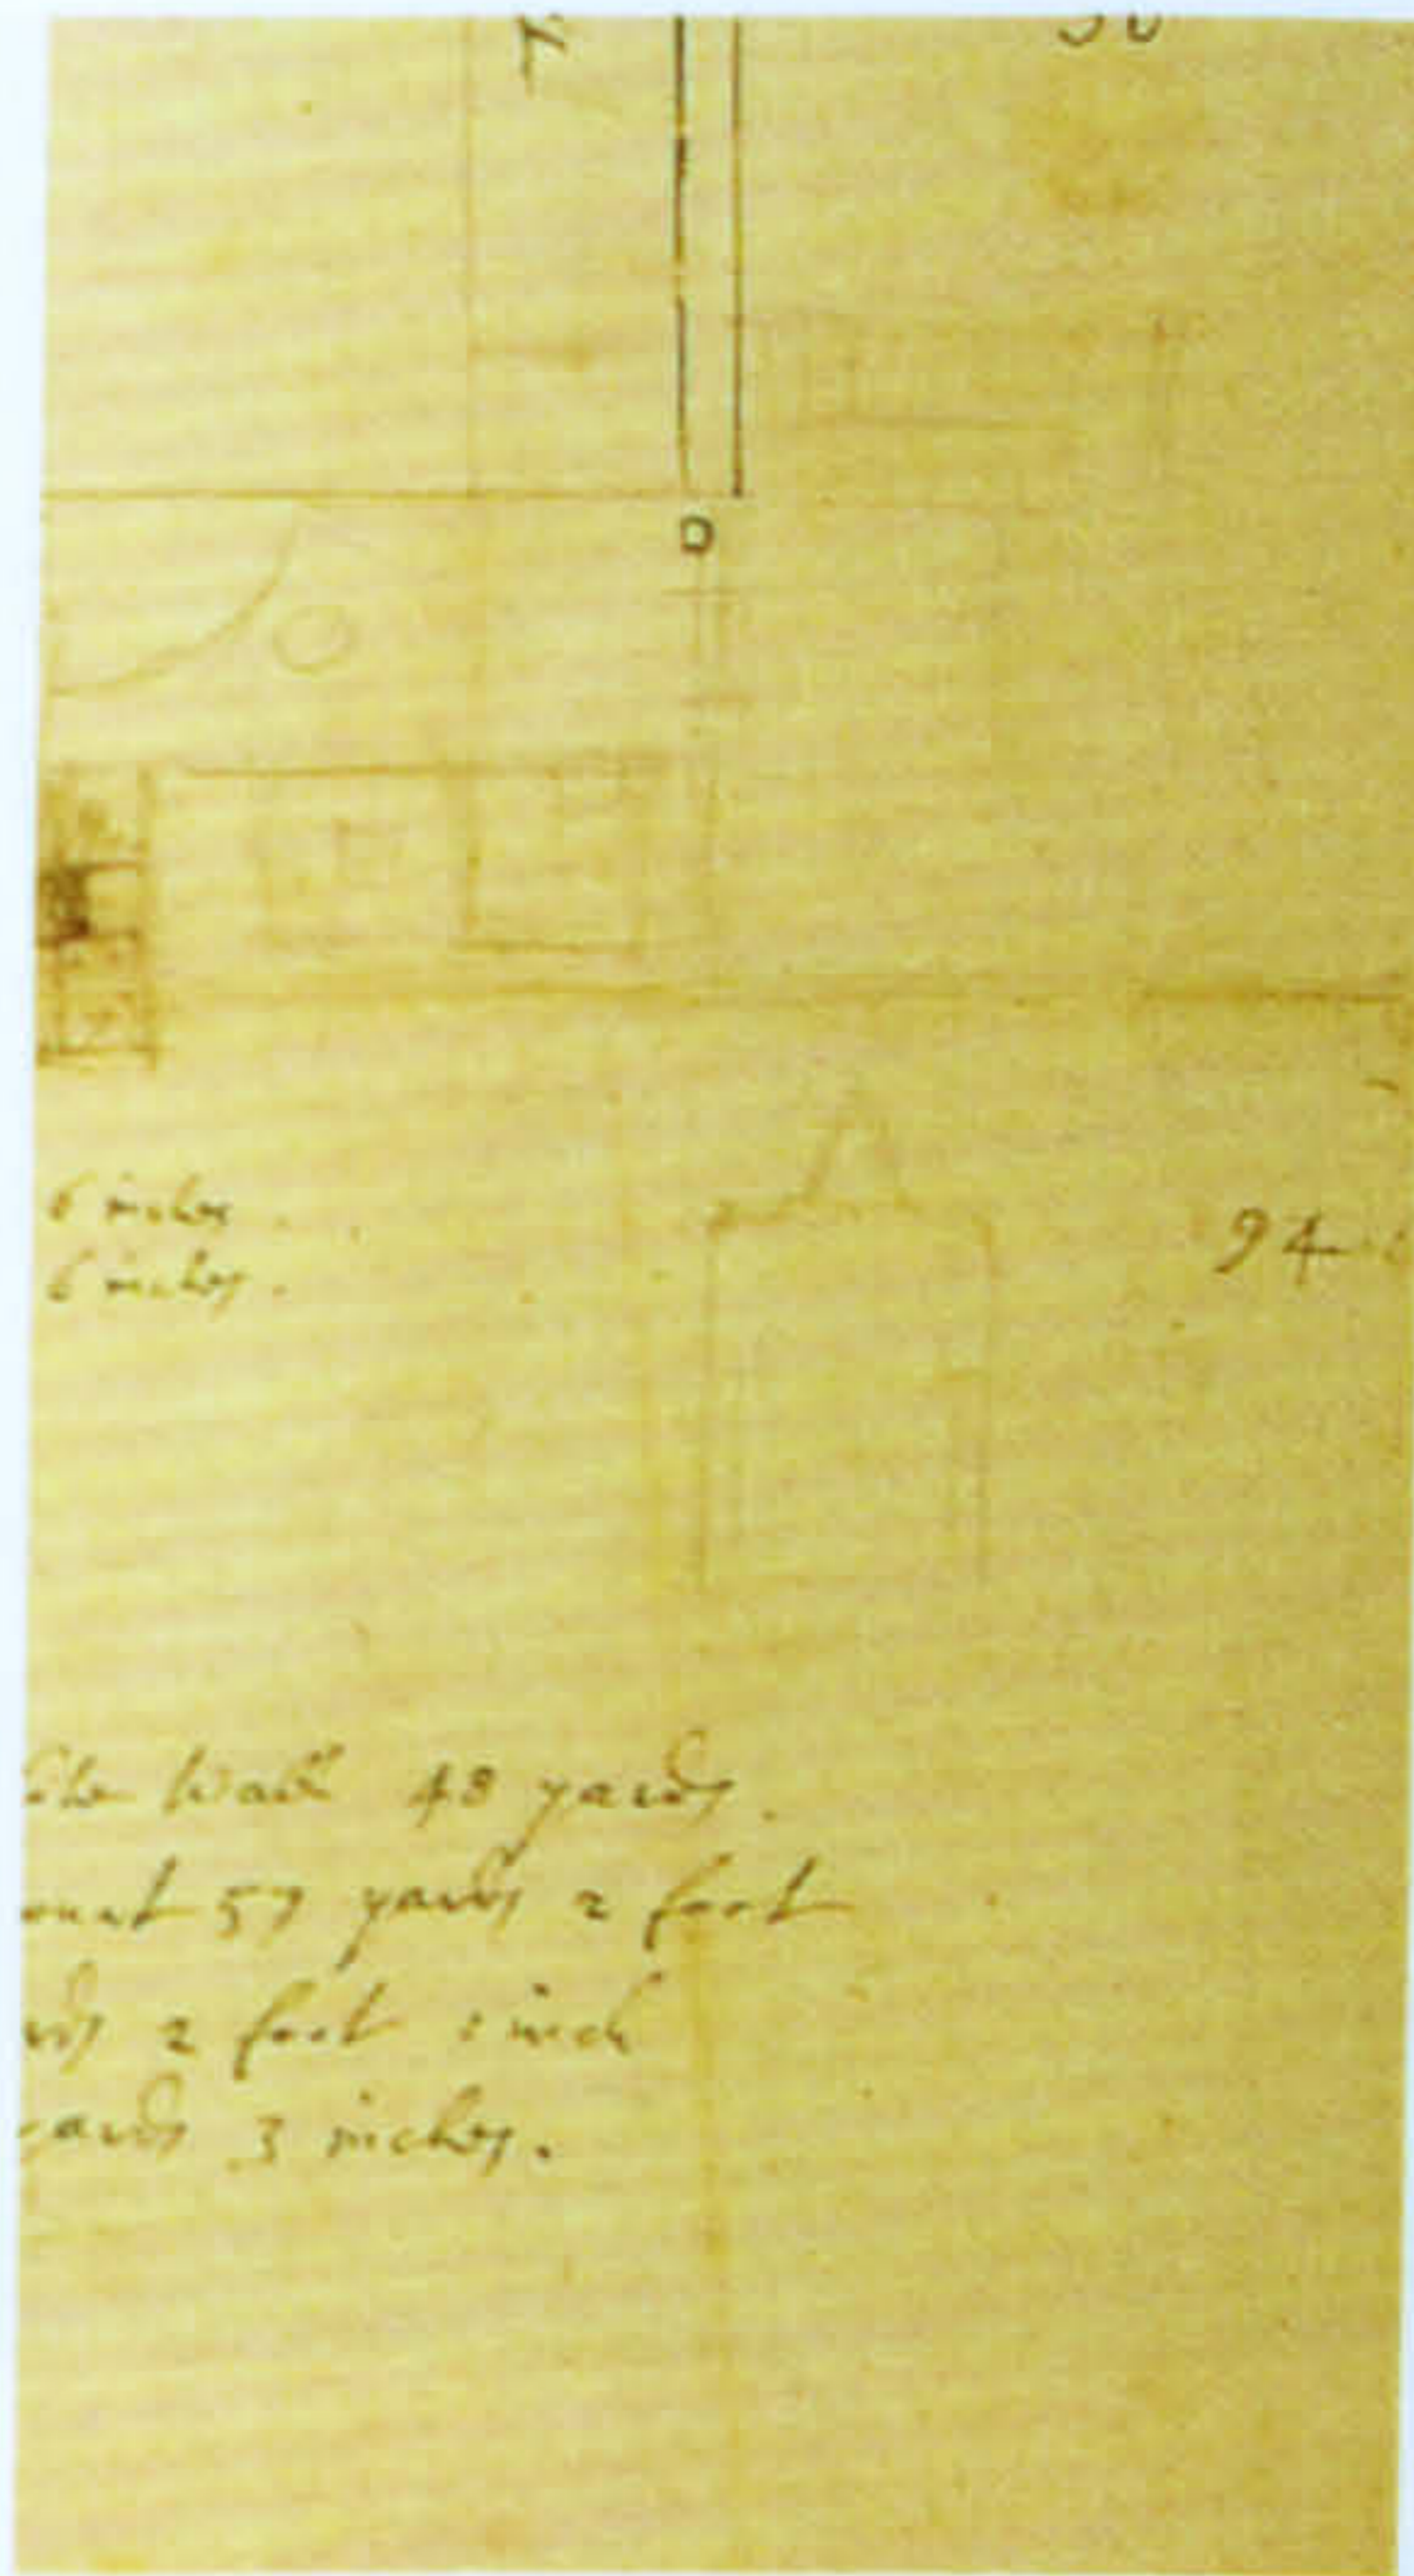 D
6 inches.
6 inches.
94
Wall 48 yards.
57 yards 2 foot
2 foot 1 inch
yards 3 inches.